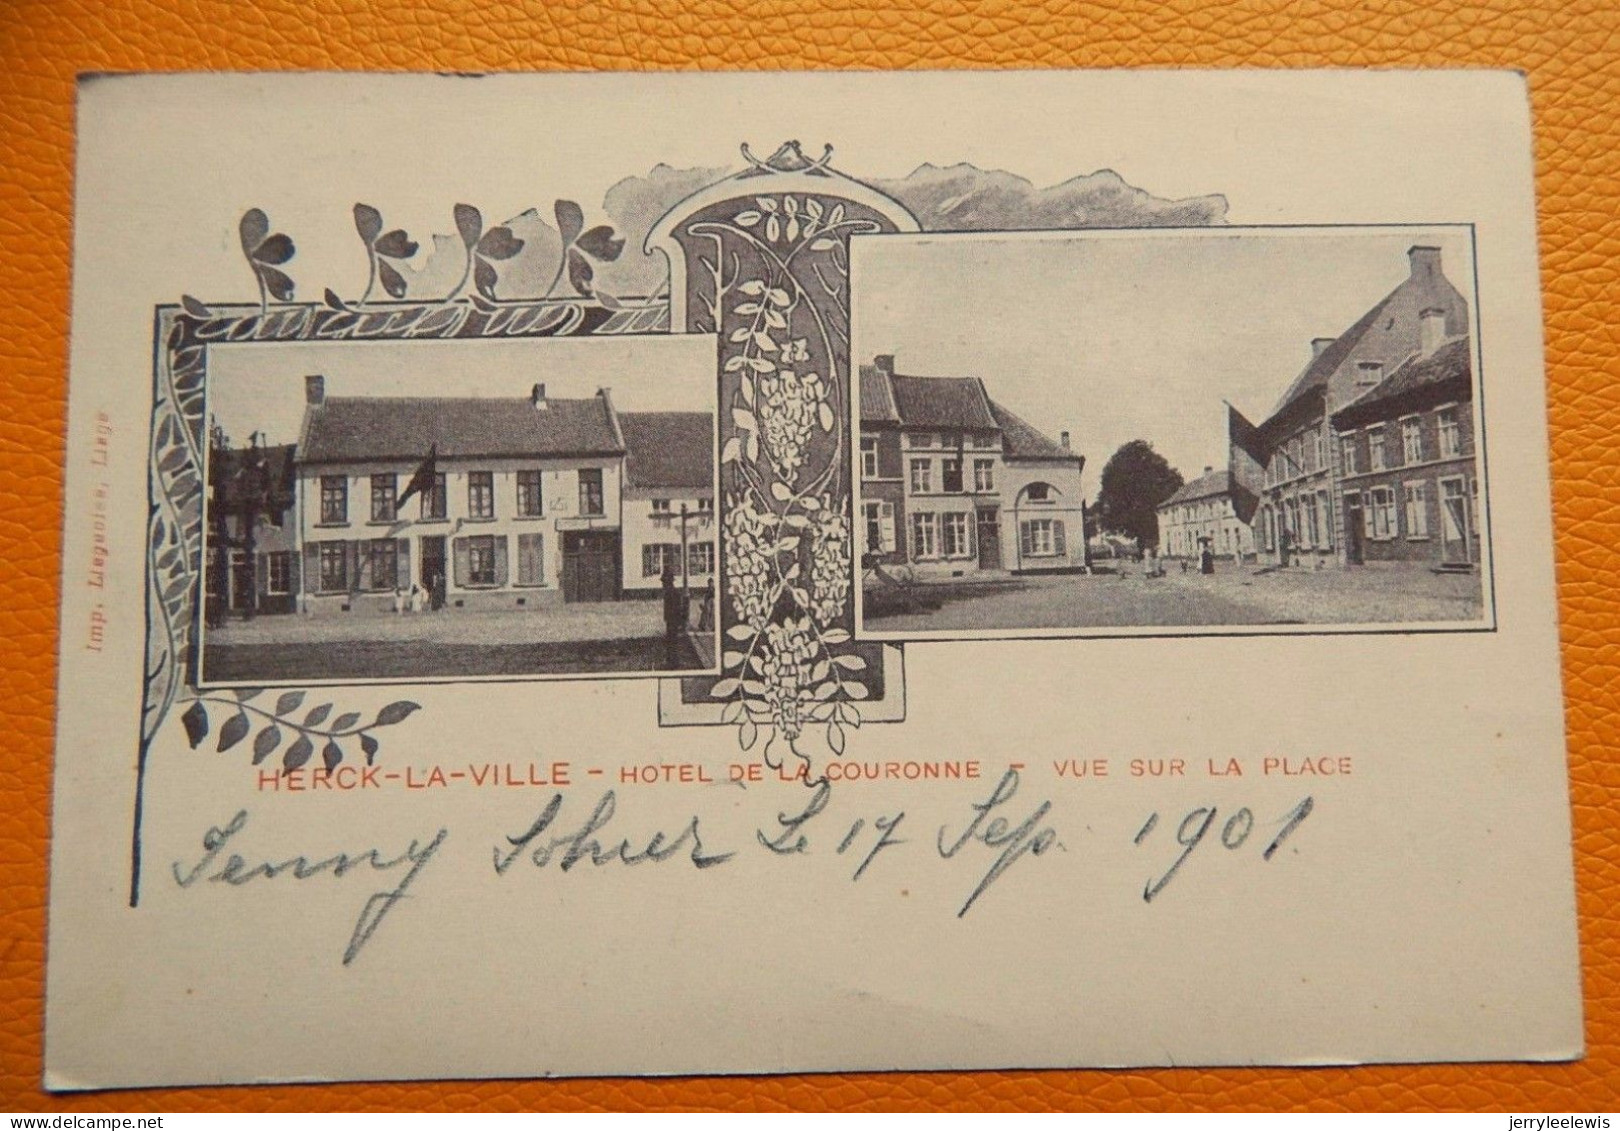 Imp. Liégeoise, Liége
HERCK-LA-VILLE - HOTEL DE LA COURONNE - VUE SUR LA PLACE
Jenny Le 17 Sep. 1901.
delcampe.net
jerryleelewis